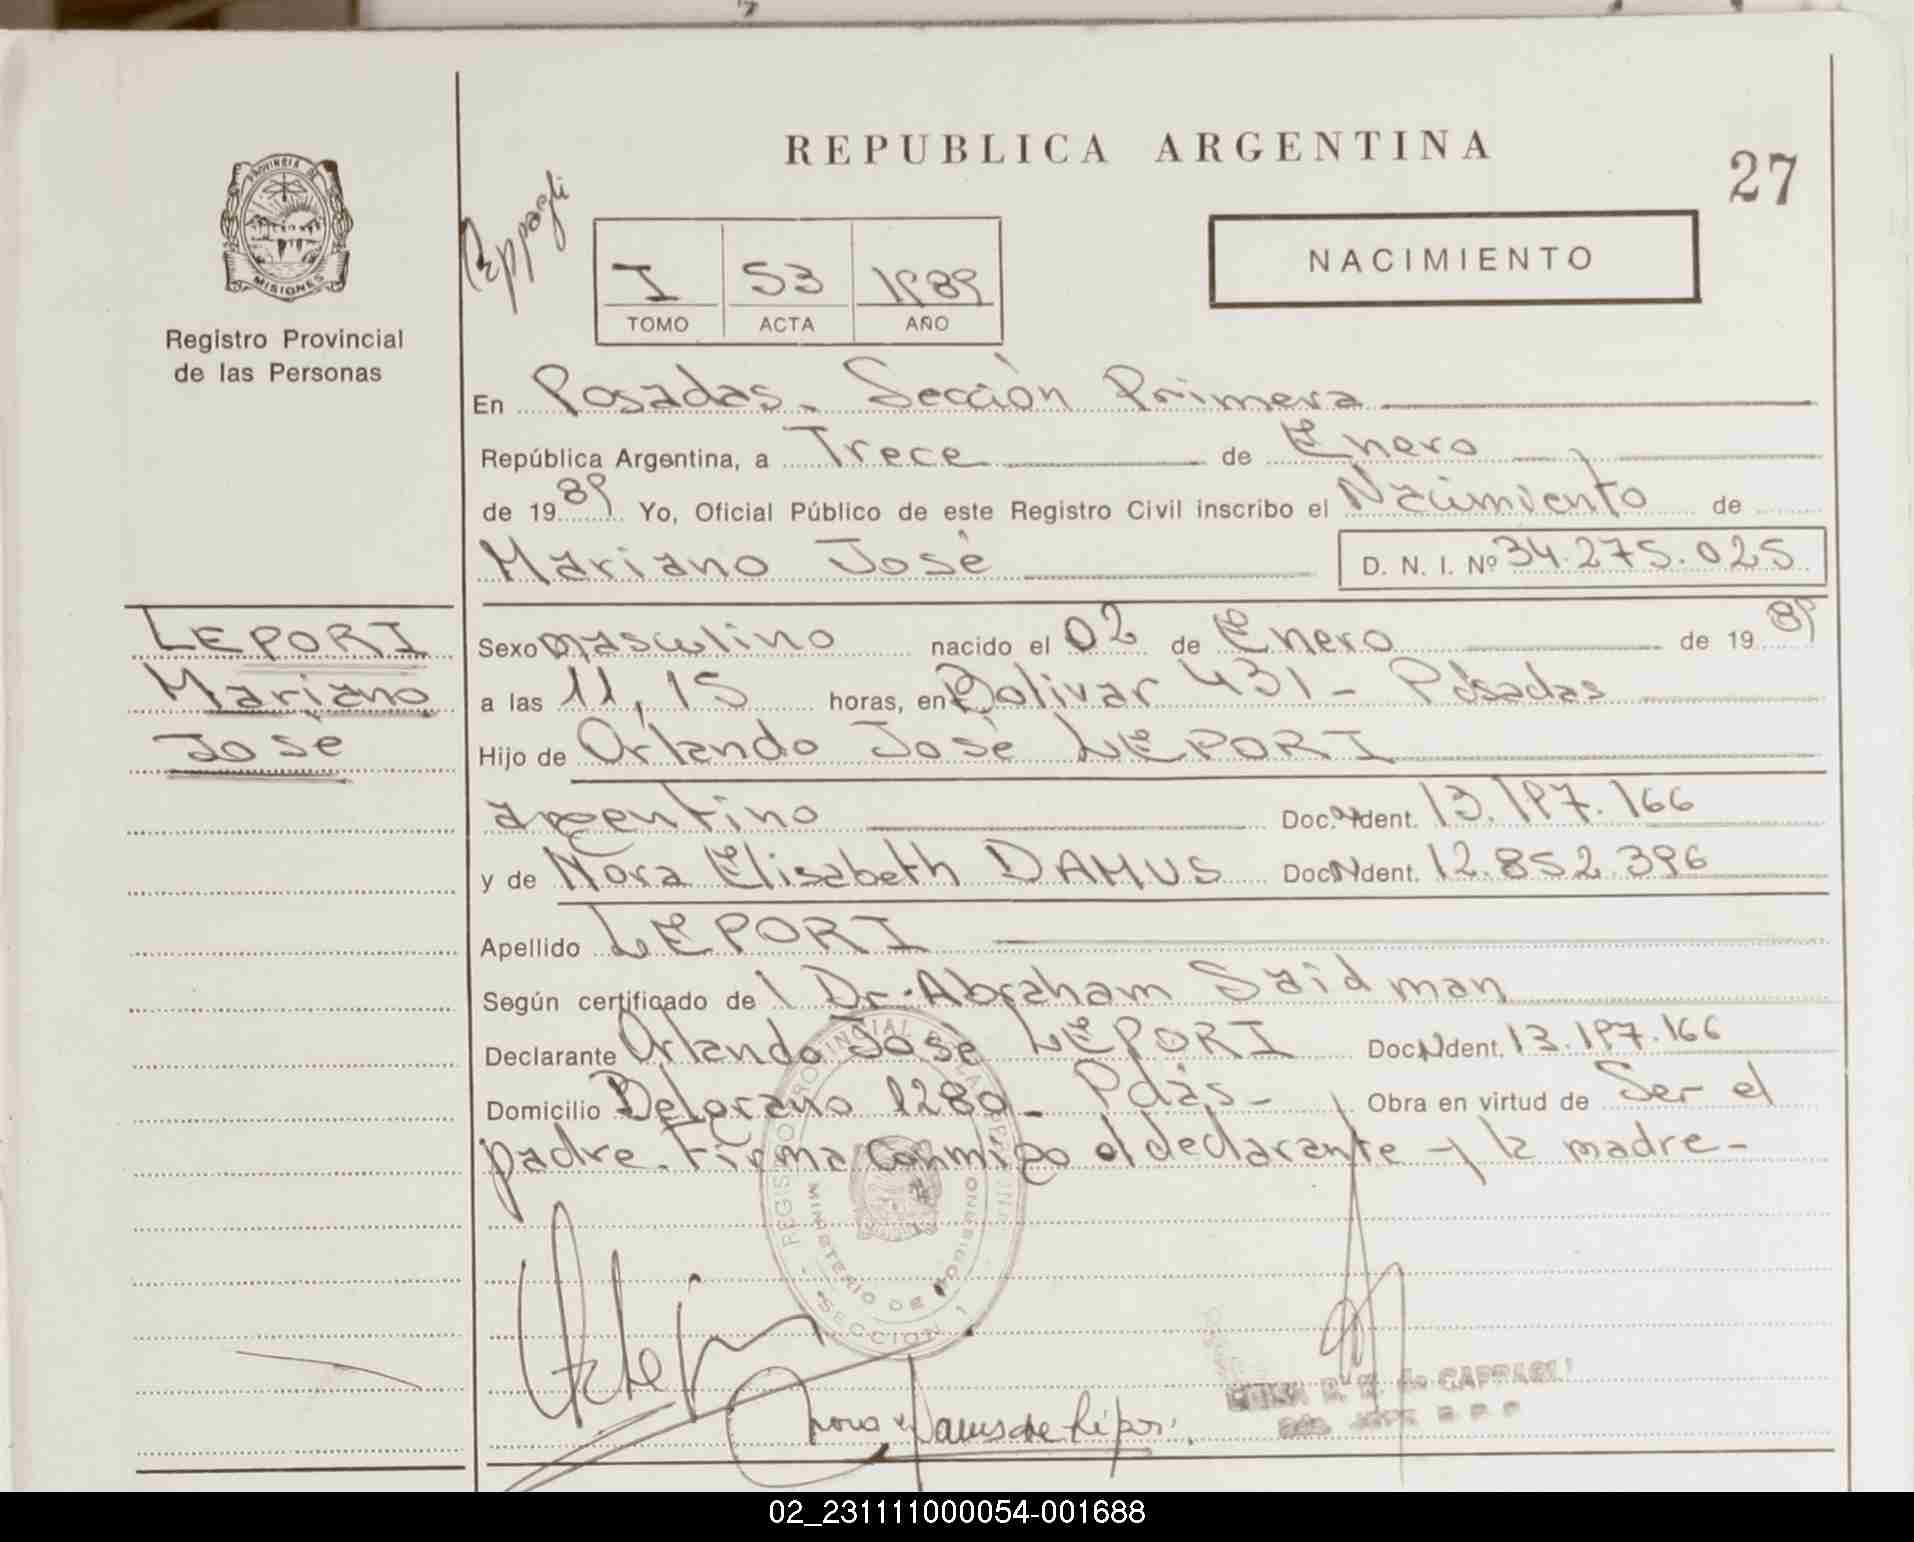 REPUBLICA ARGENTINA
27
PROVINCIA DE
MISIONES
Registro Provincial
de las Personas
NACIMIENTO
I 53 1989
TOMO ACTA AÑO
En Posadas. Sección Primera
República Argentina, a Trece de Enero
de 1989 Yo, Oficial Público de este Registro Civil inscribo el Nacimiento de
Mariano José D. N. I. Nº 34.275.025
LEPORI
Mariano
José
Sexo masculino nacido el 02 de Enero de 1989
a las 11,15 horas, en Bolivar 431 - Posadas
Hijo de Orlando José LEPORI
argentino Doc. Ident. 13.197.166
y de Nora Elisabeth DAMUS Doc Ident. 12.852.396
Apellido LEPORI
Según certificado de Dr. Abraham Saidman
Declarante Orlando José LEPORI Doc Ident. 13.197.166
Domicilio Belgrano 1280 - Pdas - Obra en virtud de Ser el
padre. Firma conmigo el declarante y la madre -
MINISTERIO DE
SECCION 1
de CAPPAGLI
02_231111000054-001688